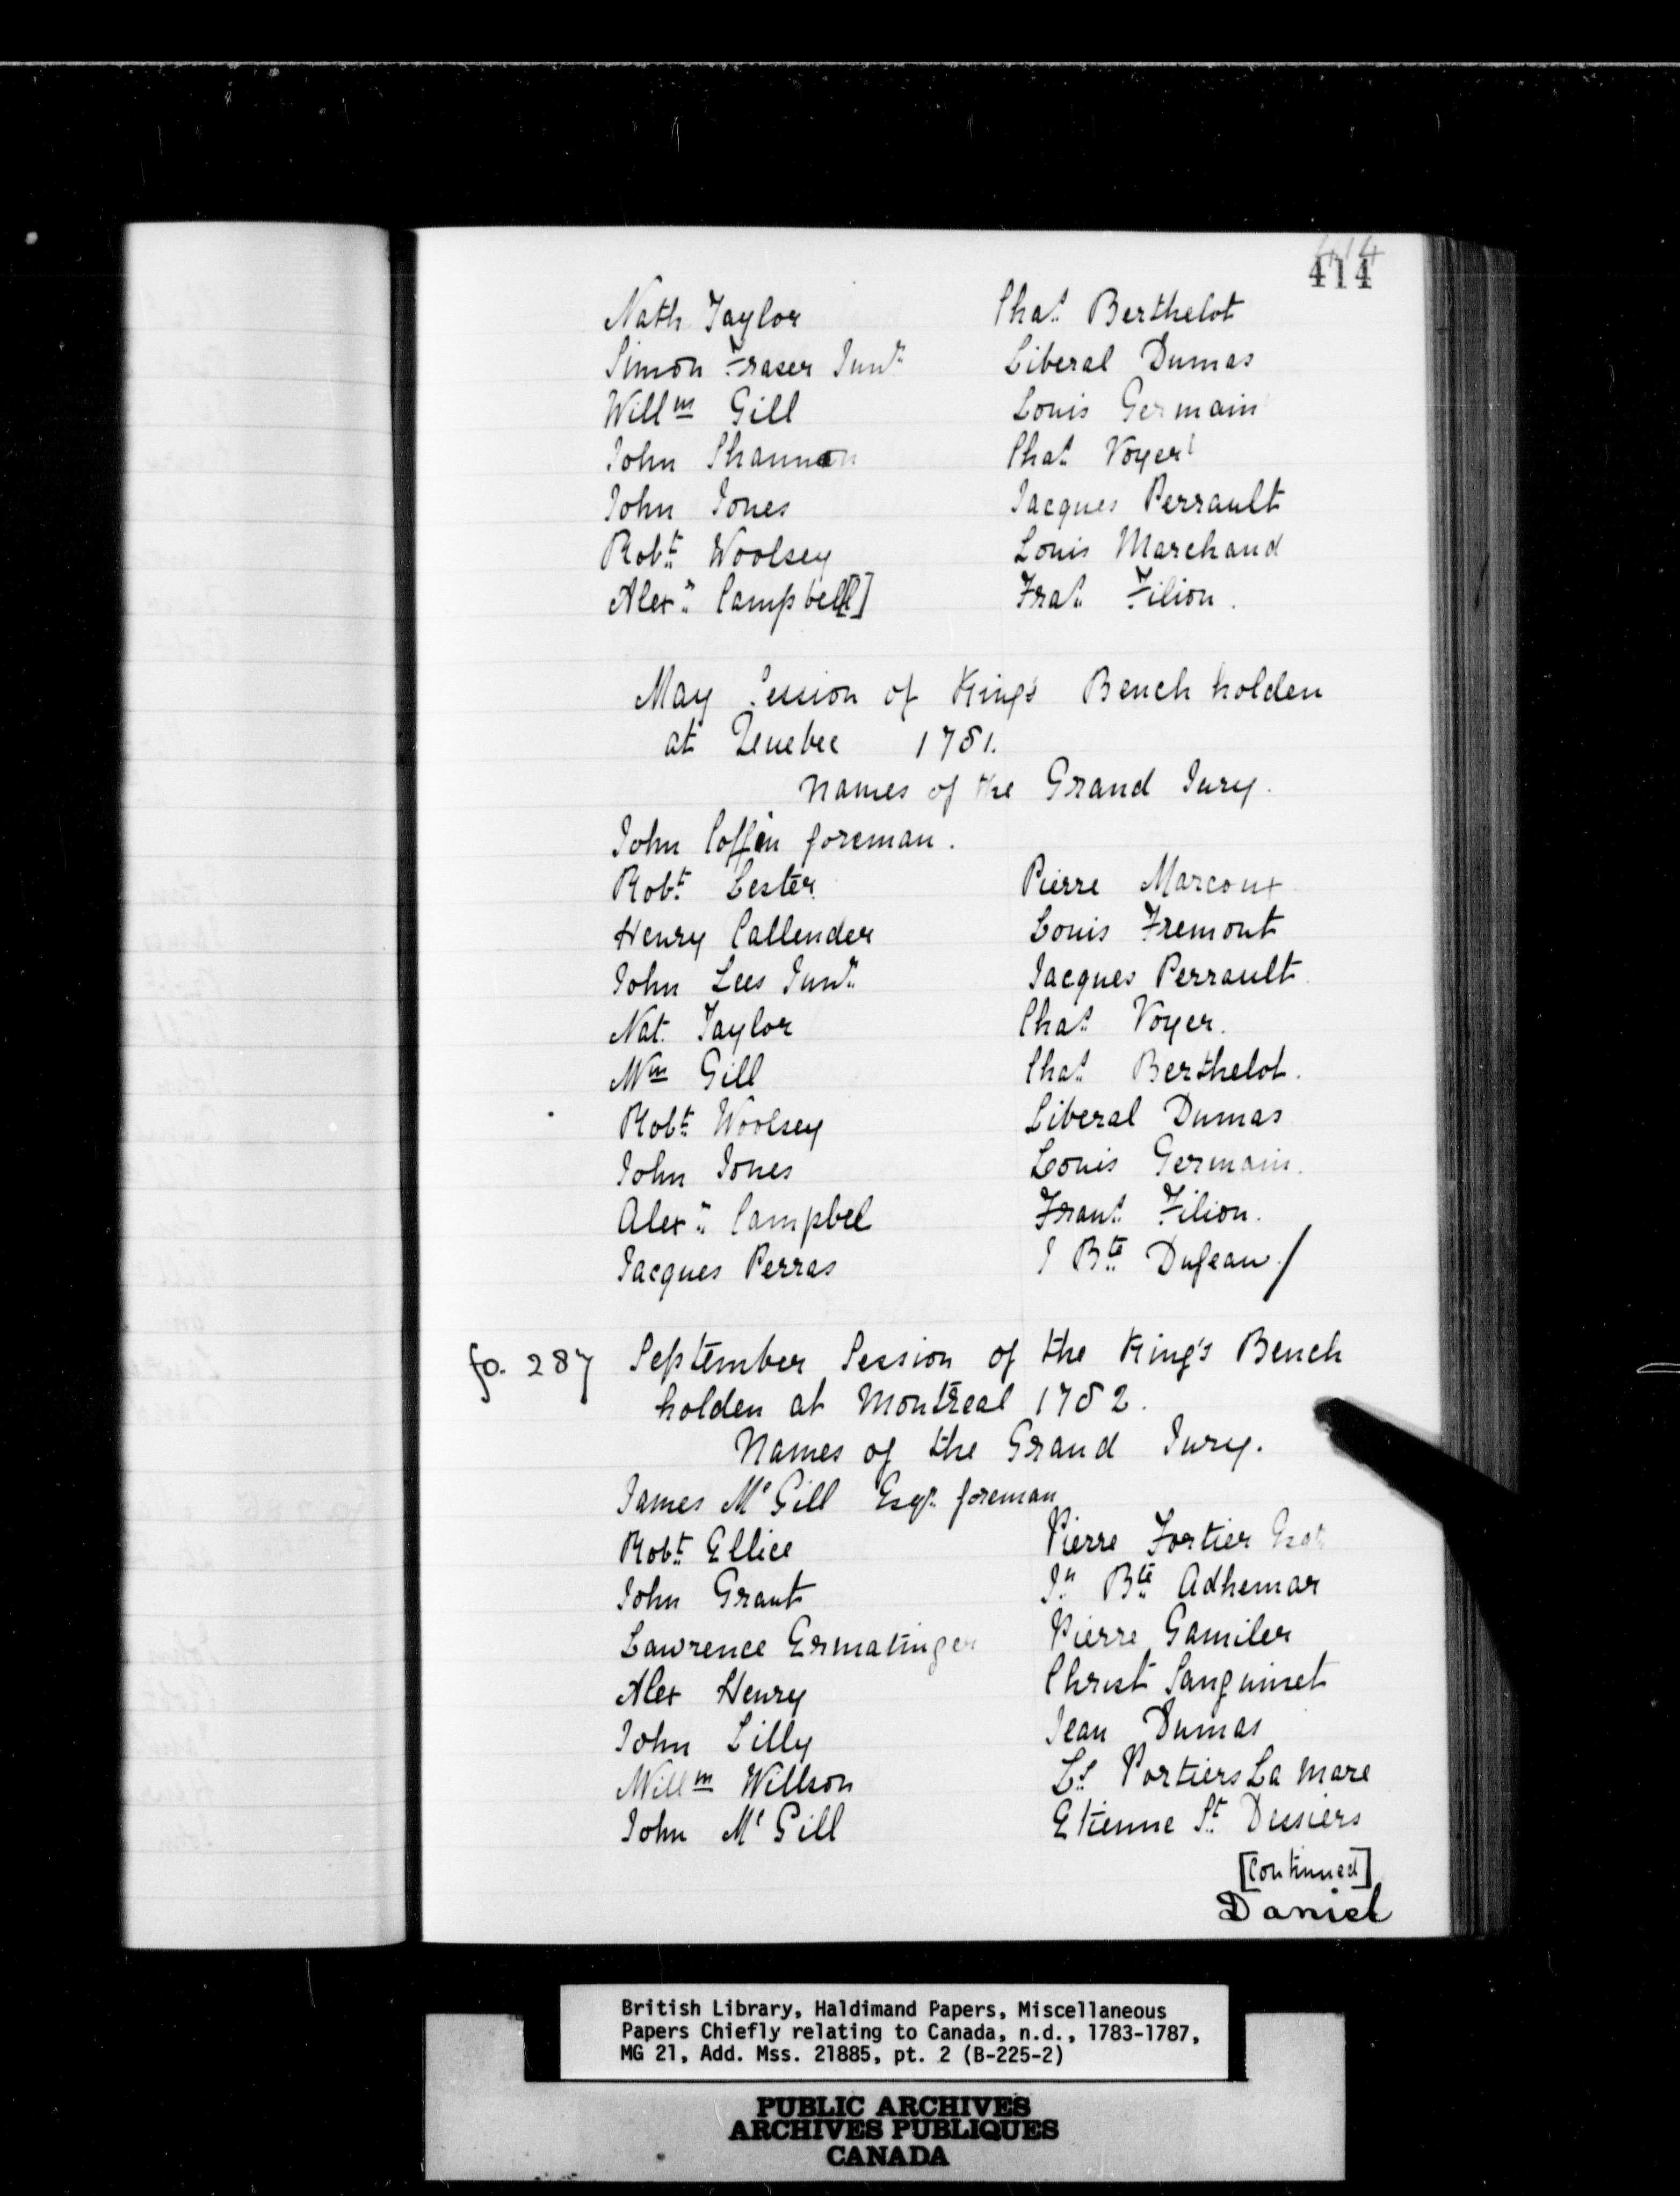 414
414
Nath Taylor Chas. Berthelot
Simon Fraser Junr. Liberal Dumas
Willm Gill Louis Germain
John Shannon Chas. Voyer
John Jones Jacques Perrault
Robt. Woolsey Louis Marchand
Alexr. Campbel[l] Fras. Filion.
May Session of King's Bench holden
at Quebec 1781.
Names of the Grand Jury.
John Coffin foreman.
Robt. Lester Pierre Marcoux
Henry Callender Louis Fremont
John Lees Junr. Jacques Perrault
Nat. Taylor Chas. Voyer.
Wm Gill Chas. Berthelot.
Robt. Woolsey Liberal Dumas
John Jones Louis Germain.
Alexr. Campbel Frans. Filion.
Jacques Perras J Bte. Dufeau./
fo. 287 September Session of the King's Bench
holden at Montreal 1782.
Names of the Grand Jury.
James McGill Esqr. foreman
Robt. Ellice Pierre Fortier Esqr
John Grant Jn. Bte. Adhemar
Lawrence Ermatinger Pierre Gamiler
Alex Henry Christ Sanguinet
John Lilly Jean Dumas
Willm Willson Ls. Portiers La Mare
John McGill Etienne St. Dessiers
[Continued]
Daniel
British Library, Haldimand Papers, Miscellaneous
Papers Chiefly relating to Canada, n.d., 1783-1787,
MG 21, Add. Mss. 21885, pt. 2 (B-225-2)
PUBLIC ARCHIVES
ARCHIVES PUBLIQUES
CANADA